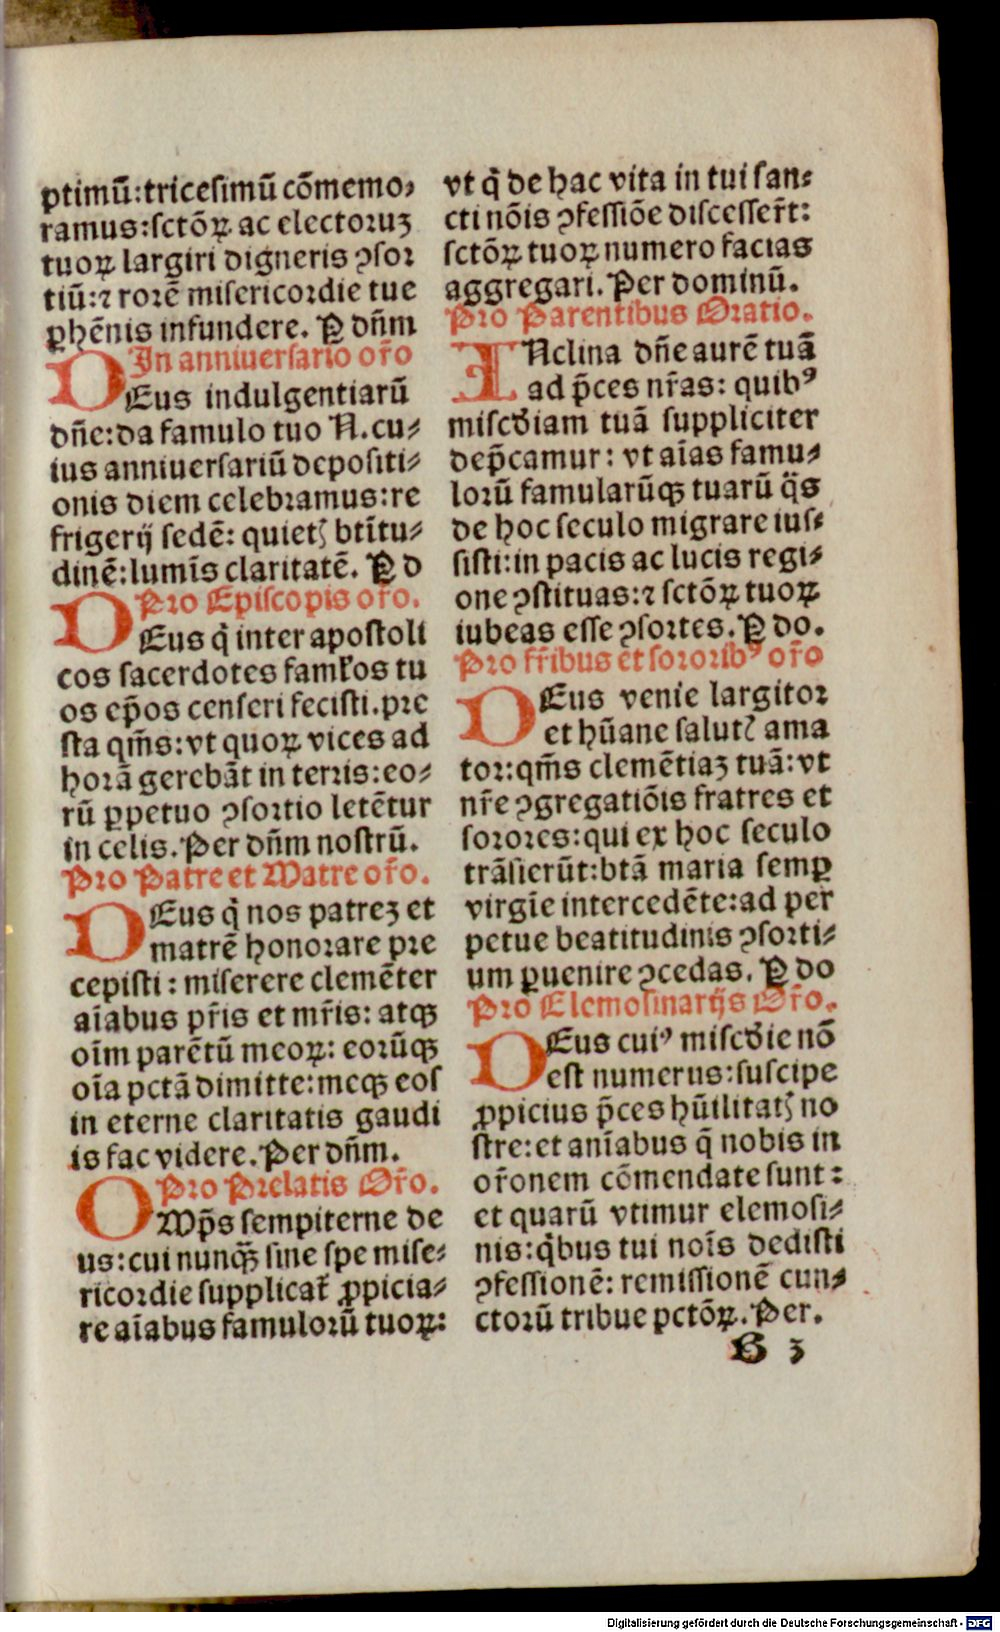 ptimū:tricesimū cōmemo⸗
ramus:sctōꝝ ac electoruꝫ
tuoꝝ largiri digneris ꝯsor
tiū:⁊ rorē misericordie tue
ꝑhēnis infundere. P dn̄m
In anniuersario or̄o
DEus indulgentiarū
dn̄e:da famulo tuo N.cu⸗
ius anniuersariū depositi⸗
onis diem celebramus:re
frigerij sedē: quietꝭ btītu⸗
dinē:lumīs claritatē. P d
Pro Episcopis or̄o.
DEus q̇ inter apostoli
cos sacerdotes famꝉos tu
os ep̄os censeri fecisti.pre
sta qm̄s:vt quoꝝ vices ad
horā gerebāt in terris:eo⸗
rū ꝑpetuo ꝯsortio letētur
in celis. Per dn̄m nostrū.
Pro Patre et Matre or̄o.
DEus q̇ nos patreꝫ et
matrē honorare pre
cepisti: miserere clemēter
aīabus pr̄is et mr̄is: atqꝫ
oīm parētū meoꝝ: eorūqꝫ
oīa pctā dimitte:meqꝫ eos
in eterne claritatis gaudi
is fac videre. Per dn̄m.
Pro Prelatis Or̄o.
OMp̄s sempiterne de
us:cui nunqꝫ̄ sine spe mise⸗
ricordie supplicat̄ ꝓpicia⸗
re aīabus famulorū tuoꝝ:
vt q̇ de hac vita in tui san⸗
cti nōis ꝯfessiōe discesser̄t:
sctōꝝ tuoꝝ numero facias
aggregari. Per dominū.
Pro Parentibus Oratio.
INclina dn̄e aurē tuā
ad p̄ces nr̄as: quibꝰ
misc̄diam tuā suppliciter
dep̄camur: vt aīas famu⸗
lorū famularūqꝫ tuarū q̄s
de hoc seculo migrare ius⸗
sisti:in pacis ac lucis regi⸗
one ꝯstituas:⁊ sctōꝝ tuoꝝ
iubeas esse ꝯsortes. P do.
Pro fr̄ibus et sororibꝰ or̄o
DEus venie largitor
et hūane salutꝭ ama
tor:qm̄s clemētiaꝫ tuā: vt
nr̄e ꝯgregatiōis fratres et
sorores:qui ex hoc seculo
trāsierūt:btā maria semꝑ
virgīe intercedēte:ad per
petue beatitudinis ꝯsorti⸗
um ꝑuenire ꝯcedas. P do
Pro Elemosinarijs Or̄o.
DEus cuiꝰ misc̄die nō
est numerus:suscipe
ꝓpicius p̄ces hūilitatꝭ no
stre:et anīabus q̄ nobis in
or̄onem cōmendate sunt:
et quarū vtimur elemosi⸗
nis:q̇bus tui noīs dedisti
ꝯfessionē: remissionē cun⸗
ctorū tribue pctōꝝ. Per.
B 3
Digitalisierung gefördert durch die Deutsche Forschungsgemeinschaft - DFG